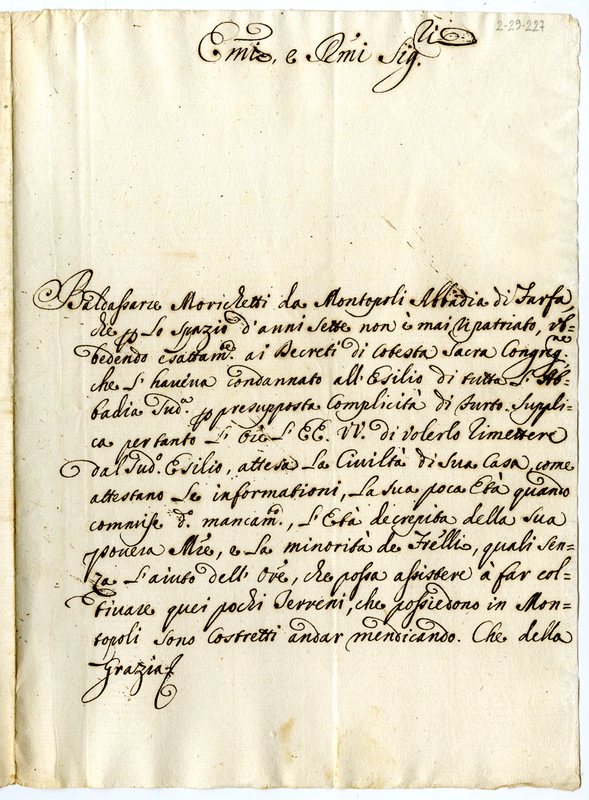 2-29-227
Emi, e Rmi Sig.ri
Baldassarre Morichetti da Montopoli Abbadia di Farfa,
che p lo spazio d'anni sette non è mai ripatriato, ob=
bedendo esattam.te ai Decreti di cotesta Sacra Congreg.ne
che l'haveva condannato all'Esilio di tutta l'Ab=
badia sud.a p presupposta complicità di furto. Suppli=
ca pertanto l' EE. VV. di volerlo rimettere
dal sud.o Esilio, attesa la Civiltà di sua Casa, come
attestano le informationi, la sua poca Età quando
commise d.o mancam.to, l'Età decrepita della sua
povera Mře, e la minorità de Frělli, quali sen=
za l'aiuto dell'Ore, che possa assistere à far col=
tivare quei pochi Terreni, che possiedono in Mon=
topoli sono costretti andar mendicando. Che della
Grazia